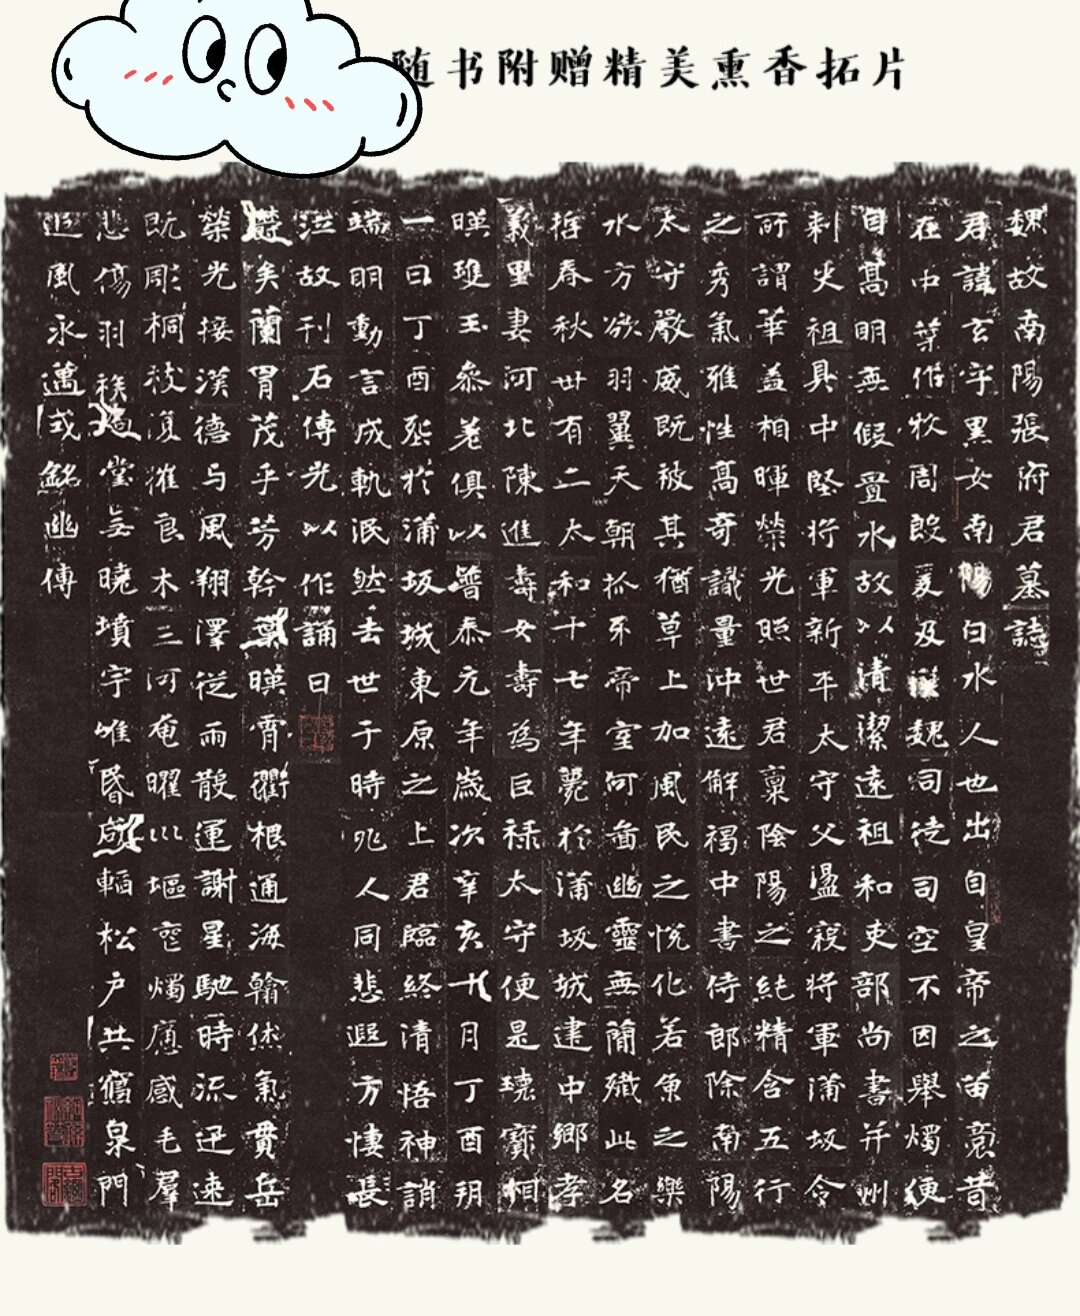 随书附赠精美熏香拓片
魏故南陽張府君墓誌
君諱玄字黑女南陽白水人也出自皇帝之苗裔昔
在中葉作牧周殷爰及漢魏司徒司空不因舉燭便
自高明無假置水故以清潔遠祖和吏部尚書并州
刺史祖具中堅將軍新平太守父盪寇將軍蒲坂令
所謂華蓋相暉榮光照世君稟陰陽之純精含五行
之秀氣雅性高奇識量沖遠解褐中書侍郎除南陽
太守嚴威既被其猶草上加風民之悅化若魚之樂
水方欲羽翼天朝抓牙帝室何啚幽靈無簡殲此名
哲春秋卅有二太和十七年薨於蒲坂城建中鄉孝
義里妻河北陳進壽女壽為巨祿太守便是瓌寶相
暎瓊玉參差俱以普泰元年歲次辛亥十月丁酉朔
一日丁酉葬於蒲坂城東原之上君臨終清悟神誚
端明動言成軌泯然去世于時兆人同悲遐方悽長
泣故刊石傳光以作誦曰
欝矣蘭胄茂乎芳幹葉暎霄衢根通海翰倐氣貫岳
榮光接漢德与風翔澤從雨散運謝星馳時流迅速
既彫桐枝復摧良木三河奄曜川塸罨燭痛感毛羣
悲傷羽族扃堂無曉墳宇唯昏咸韜松戶共寢泉門
追風永邁式銘幽傳